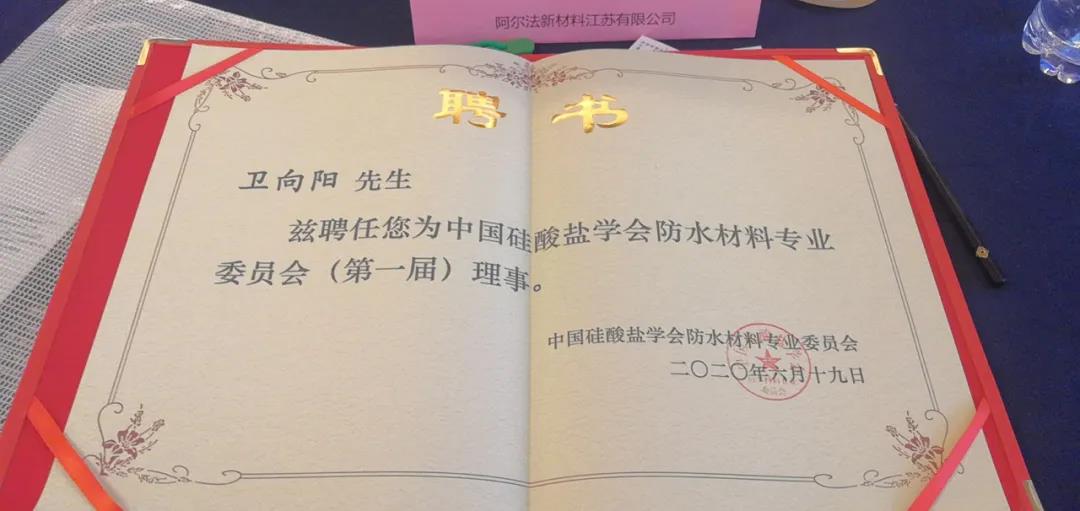 阿尔法新材料江苏有限公司
聘书
卫向阳 先生
兹聘任您为中国硅酸盐学会防水材料专业
委员会（第一届）理事。
中国硅酸盐学会防水材料专业委员会
二〇二〇年六月十九日